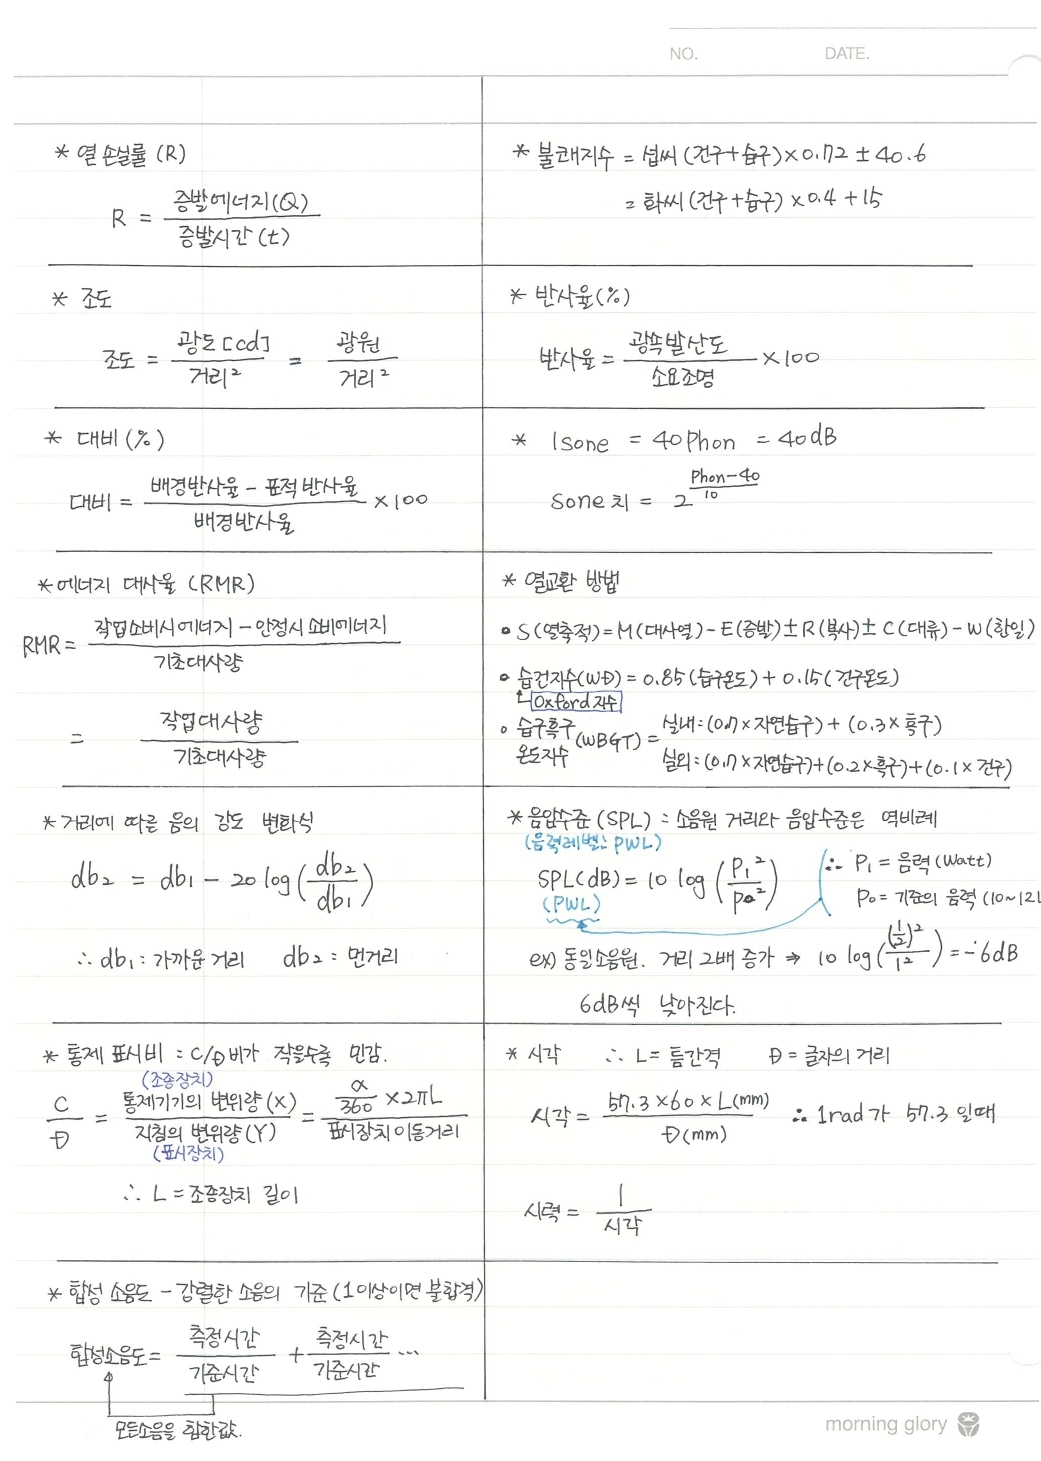 NO. DATE.
* 열 손실률 (R)
R = 증발에너지(Q) / 증발시간 (t)
* 불쾌지수 = 섭씨 (건구+습구)×0.72 ± 40.6
= 화씨 (건구+습구) ×0.4 +15
* 조도
조도 = 광도[cd] / 거리² = 광원 / 거리²
* 반사율(%)
반사율 = 광속발산도 / 소요조명 ×100
* 대비(%)
대비 = 배경반사율 - 표적반사율 / 배경반사율 ×100
* 1sone = 40phon = 40dB
Sone치 = 2^(Phon-40 / 10)
*에너지 대사율 (RMR)
RMR = 작업소비시에너지 - 안정시 소비에너지 / 기초대사량
= 작업대사량 / 기초대사량
* 열교환 방법
• S(열축적)=M(대사열)-E(증발)±R(복사)±C(대류)-W(한일)
• 습건지수(WD) = 0.85(습구온도) + 0.15(건구온도)
Oxford지수
• 습구흑구온도지수 (WBGT) = 실내:(0.7×자연습구) + (0.3×흑구)
실외:(0.7×자연습구)+(0.2×흑구)+(0.1×건구)
*거리에 따른 음의 강도 변화식
db₂ = db₁ - 20 log(db₂ / db₁)
∴ db₁: 가까운거리 db₂: 먼거리
* 음압수준 (SPL) : 소음원 거리와 음압수준은 역비례
(음력레벨: PWL)
SPL(dB) = 10 log (P₁² / P₀²)
(PWL)
∴ P₁ = 음력(Watt)
P₀= 기준의 음력 (10~12)
ex) 동일소음원. 거리 2배 증가 ⇒ 10 log((1/2)² / 1²) = -6dB
6dB씩 낮아진다.
* 통제 표시비 : C/D비가 작을수록 민감.
(조종장치)
C / D = 통제기기의 변위량(X) / 지침의 변위량(Y) = α/360 ×2πL / 표시장치이동거리
(표시장치)
∴ L = 조종장치 길이
* 시각 ∴ L= 틈간격 D = 글자의 거리
시각 = 57.3×60×L(mm) / D(mm) ∴ 1rad가 57.3 일때
시력 = 1 / 시각
* 합성 소음도 - 강렬한 소음의 기준 (1이상이면 불합격)
합성소음도 = 측정시간 / 기준시간 + 측정시간 / 기준시간 ...
모든소음을 합한값.
morning glory